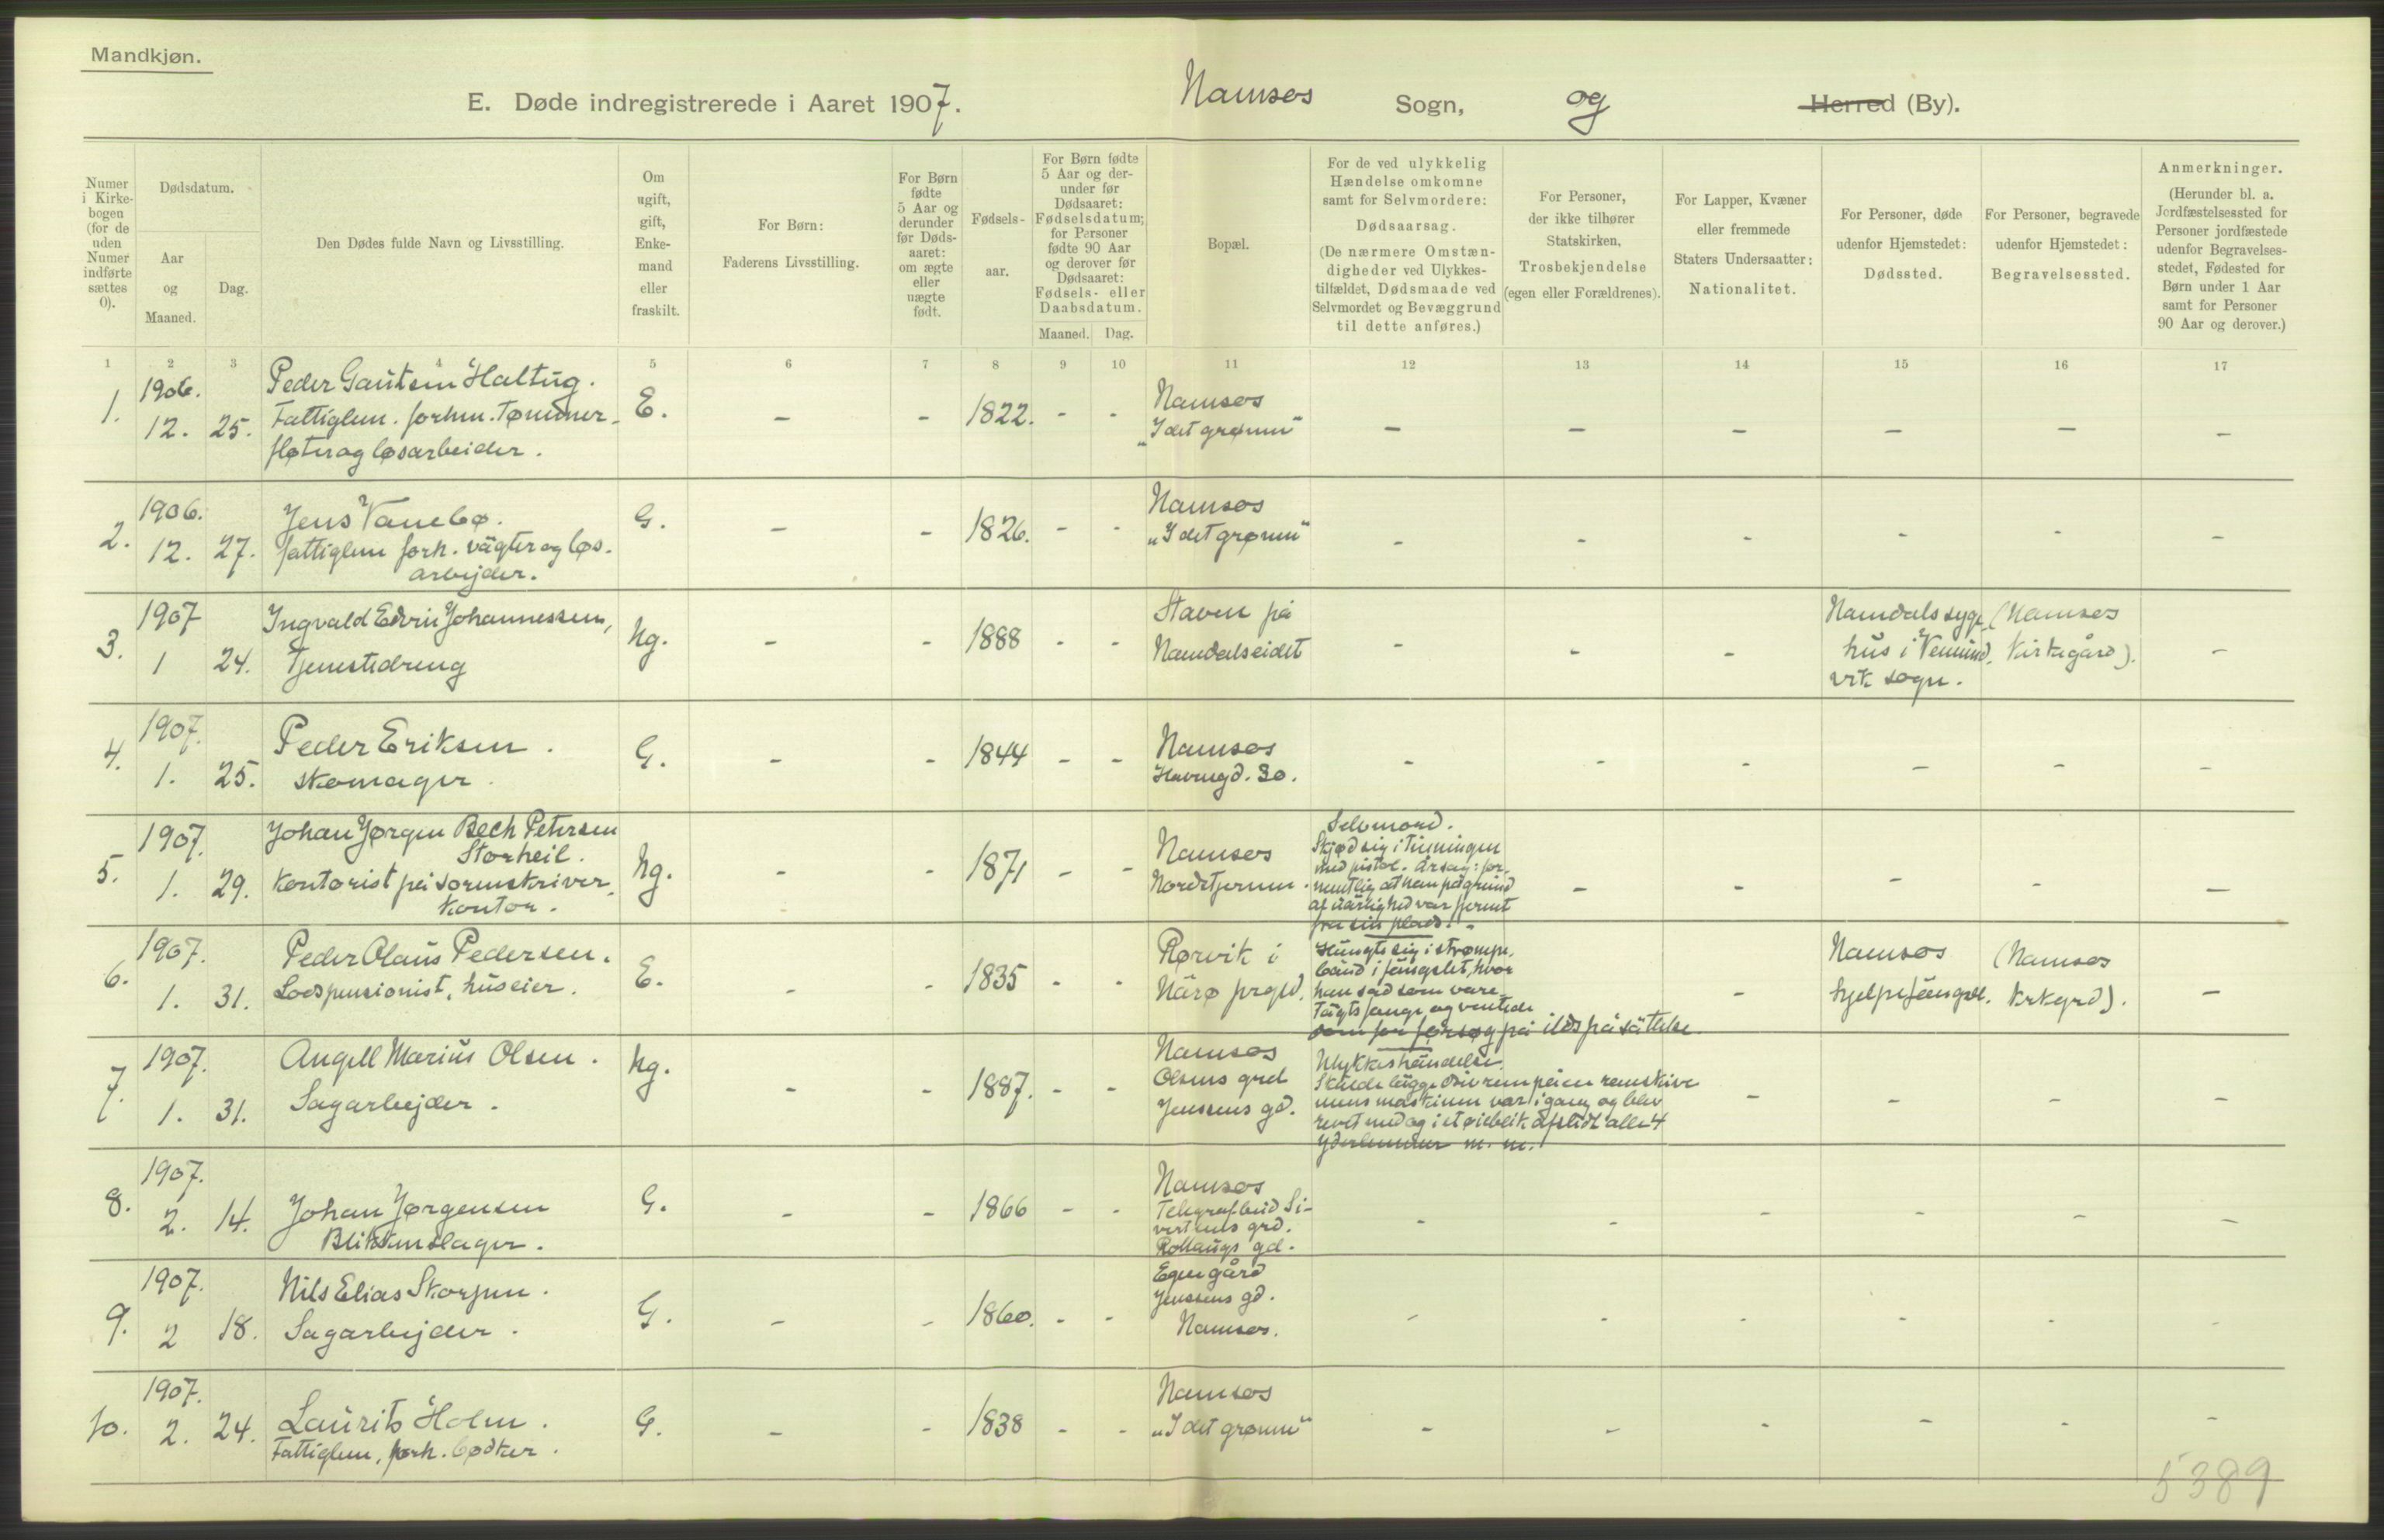 Mandkjøn.
E. Døde indregistrerede i Aaret 1907. Namsos Sogn, og Herred (By).
Numer i Kirkebogen (for de uden Numer indførte sættes 0).
Dødsdatum.
Aar og Maaned.
Dag.
Den Dødes fulde Navn og Livsstilling.
Om ugift, gift, Enkemand eller fraskilt.
For Børn: Faderens Livsstilling.
For Børn fødte 5 Aar og derunder før Dødsaaret: om ægte eller uægte født.
Fødselsaar.
For Børn fødte 5 Aar og derunder før Dødsaaret: Fødselsdatum; for Personer fødte 90 Aar og derover før Dødsaaret: Fødsels- eller Daabsdatum.
Maaned. Dag.
Bopæl.
For de ved ulykkelig Hændelse omkomne samt for Selvmordere: Dødsaarsag. (De nærmere Omstændigheder ved Ulykkestilfældet, Dødsmaade ved Selvmordet og Bevæggrund til dette anføres.)
For Personer, der ikke tilhører Statskirken, Trosbekjendelse (egen eller Forældrenes).
For Lapper, Kvæner eller fremmede Staters Undersaatter: Nationalitet.
For Personer, døde udenfor Hjemstedet: Dødssted.
For Personer, begravede udenfor Hjemstedet: Begravelsessted.
Anmerkninger. (Herunder bl. a. Jordfæstelsessted for Personer jordfæstede udenfor Begravelsesstedet, Fødested for Børn under 1 Aar samt for Personer 90 Aar og derover.)
1 2 3 4 5 6 7 8 9 10 11 12 13 14 15 16 17
1. 1906. 12. 25. Peder Gautsen Haltug. E. - - 1822. - - Namsos
Fattiglem. forhn. Tømmer- "I det grønne" - - - - - -
fløter og løsarbeider.
2. 1906. 12. 27. Jens Vanebo. G. - - 1826. - - Namsos
fattiglem forh. vägter og løs- "I det grønne" - - - - - -
arbejder.
3. 1907 1 24. Ingvald Edvin Johannessen, Ug. - - 1888 - - Staven på - - - Namdals syge- (Namsos
Tjenestedreng Namdalseidet hus i Vemund- Kirkegård). -
vik sogn.
4. 1907. 1. 25. Peder Eriksen. G. - - 1844 - - Namsos
skomager. Havnegd. 30. - - - - - -
5. 1907. 1. 29. Johan Jørgen Bech Petersen Ug. - - 1871 - - Namsos Selvmord.
Storheil. Skjød sig i tinningen
Kontorist på sorenskriver- Nordtjernen. med pistol. Årsag: for-
kontor. nemtlig at han på grund
af dårlighed var fjernet
fra sin plads. - - - - -
6. 1907. 1. 31. Peder Olaus Pedersen. E. - - 1835 - - Rørvik i Hængte sig i strømpe-
Lodspensionist, huseier. Närø prgjld. bånd i fængslet, hvor
han sad som vare-
tägtsfange og ventede
dom for forsøg på ildspåsättelse.
- Namsos (Namsos
hjelpefängsel. Kirkegrd). -
7. 1907. 1. 31. Angell Marius Olsen. Ug. - - 1887. - - Namsos Ulykkeshändelse.
Sagarbejder. Olsens grd Skulde lägge drivrem på en remskive
Jenssens gd. mens maskinen var i gang og blev
revet med og i et øieblik afslidt alle 4
yderlemmer m. m. - - - -
8. 1907. 2. 14. Johan Jørgensen G. - - 1866 - - Namsos
Blikkenslager. Telegrafbud Si-
vertsens grd.
Rollaugs gd. - - - - - -
9. 1907. 2 18. Nils Elias Skorpen. G. - - 1860. - - Egen gård
Sagarbejder. Jenssens gd.
Namsos. - - - - - -
10. 1907. 2. 24. Laurits Holm. G. - - 1838 - - Namsos
Fattiglem, forh. bødker. "I det grønne" - - - - - -
5389